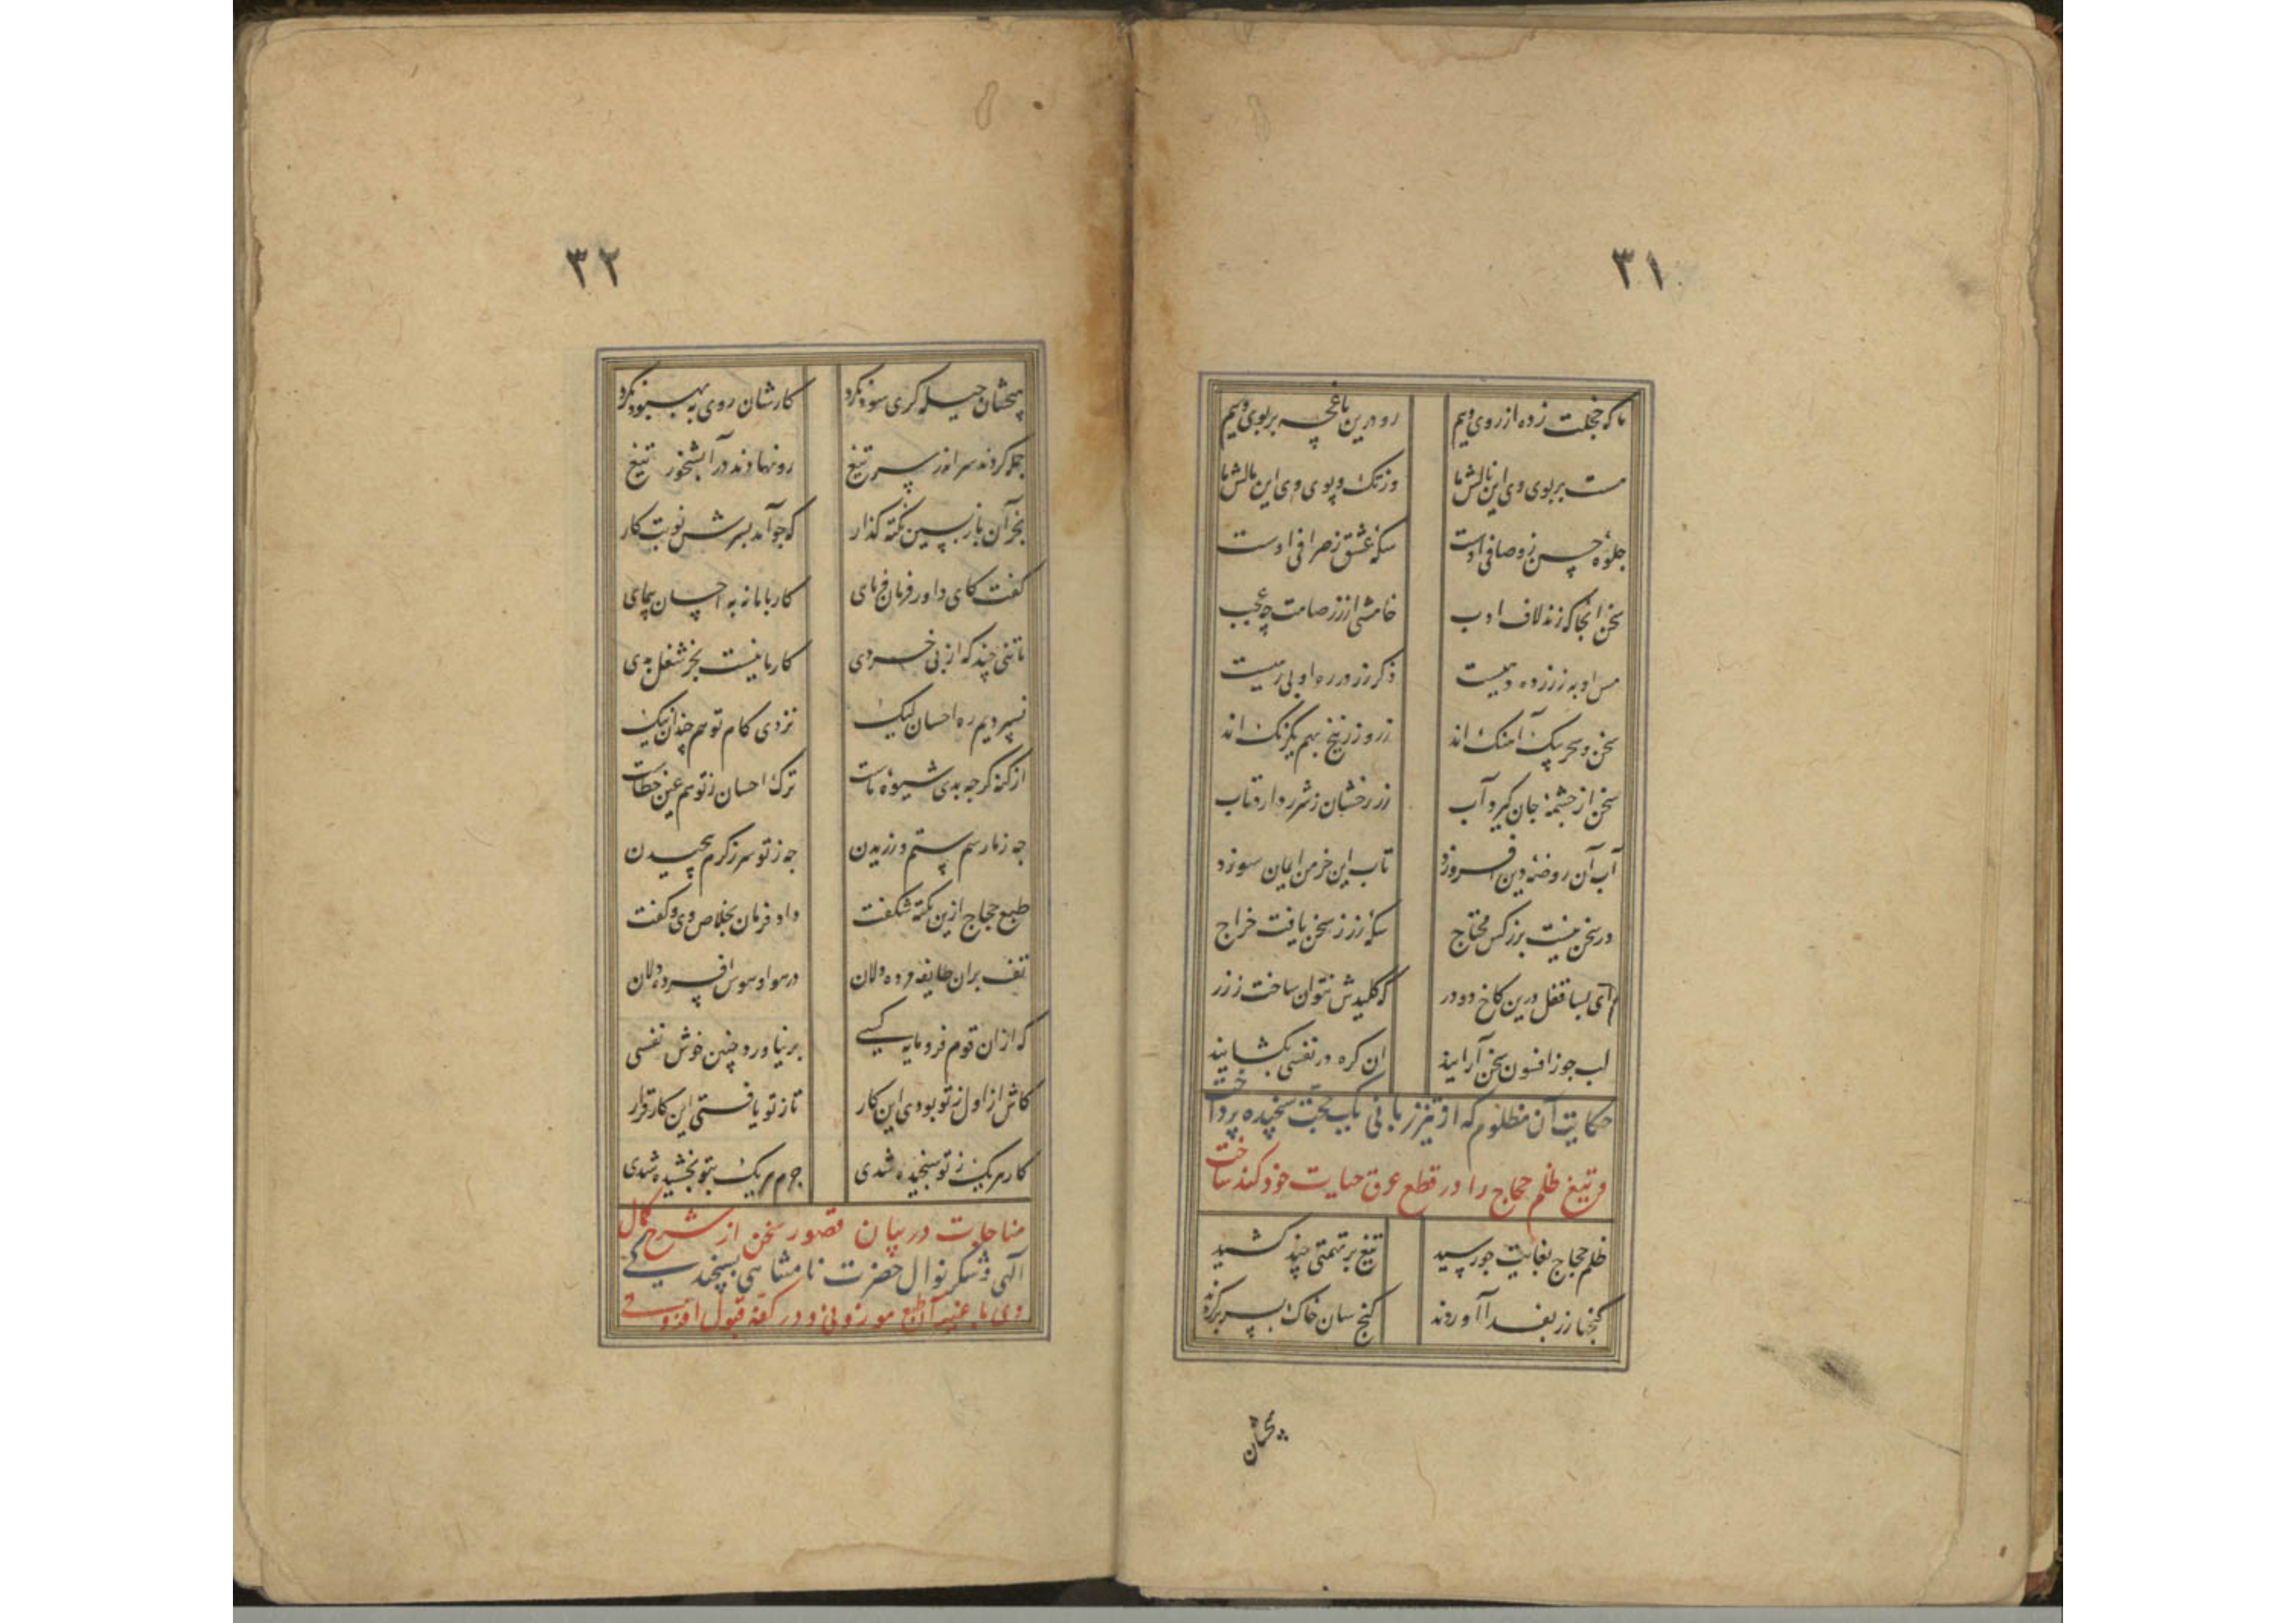 ۳۱
ما که خجلت زده از روی ویم رو درین باغچه بر بوی ویم
مست بر بوی وی این نالش ما وز تک و پوی وی این مالش ما
جلوه حسن ز وصافی اوست سکه عشق ز صرافی اوست
سخن آنجا که زند لاف ادب خامشی از زر صامت چه عجب
مس او به ز زر ده دهیست ذکر زر در ره او بی رهیست
سخن و سحر یک آهنک اند زر و زرنیخ بهم یکرنک اند
سخن از چشمه جان کیرد آب زر رخشان ز شرر دارد تاب
آب آن روضه دین افروزد تاب این خرمن ایمان سوزد
در سخن نیست بزر کس محتاج سکه زر ز سخن یافت خراج
ای بسا قفل درین کاخ دو در که کلیدش نتوان ساخت ز زر
لب جو ز افسون سخن آرایند ان کره در نفسی بکشایند
حکایت آن مظلوم که از تیز زبانی یک نکت سنجیده پرداخت
و تیغ ظلم حجاج را در قطع عرق حیات خود کند ساخت
ظلم حجاج بغایت جو رسید تیغ بر تهمتی چند کشید
کنجها زر بفدا آوردند کنج سان خاک بسر بر کردند
پیخشان
۳۲
پیخشان حیله کری سود نکرد کارشان روی به بهبود نکرد
جمله کردند سر اندر سر تیغ رو نهادند در آبشخور تیغ
بجز آن بازپسین نکته کذار که جو آمد بسرش نوبت کار
کفت کای داور فرمان فرمای کار با ما نه به احسان پیمای
ما تنی چند که از بی خردی کار ما نیست بجز شغل بدی
نسپردیم ره احسان لیک نزدی کام تو هم چندان نیک
از کنه کرجه بدی شیوه ماست ترک احسان ز تو هم عین خطاست
جه ز ما رسم ستم ورزیدن جه ز تو سر ز کرم پیچیدن
طبع حجاج ازین نکته شکفت داد فرمان بخلاص وی و کفت
تف بران طایفه مرده دلان در هوا و هوس افسرده دلان
که ازان قوم فرومایه کسی برنیاورد چنین خوش نفسی
کاش از اول ز تو بودی این کار تا ز تو یافتی این کار قرار
کار هر یک ز تو سنجیده شدی جرم هر یک بتو بخشیده شدی
مناجات در بیان قصور سخن از شرح کمال
الهی و شکر نوال حضرت نامتناهی بسنجد
وی با عنبر طبع موزونی و در کفه قبول افزونی